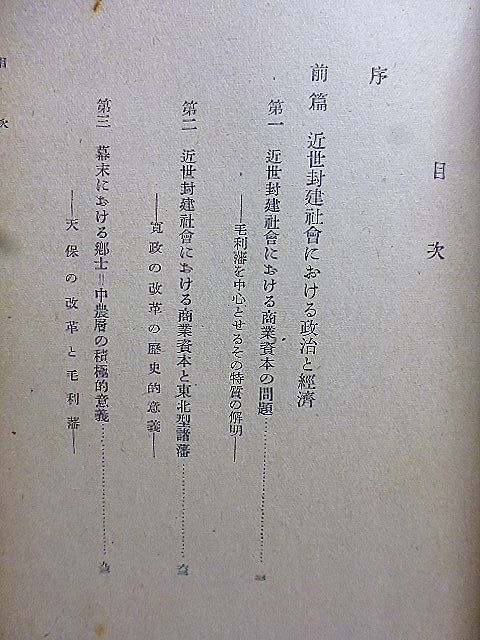 目次
序
前篇 近世封建社會における政治と經濟
第一 近世封建社會における商業資本の問題
――毛利藩を中心とせるその特質の解明――
第二 近世封建社會における商業資本と東北型諸藩
――寛政の改革の歷史的意義――
第三 幕末における鄕士=中農層の積極的意義
――天保の改革と毛利藩――
目次